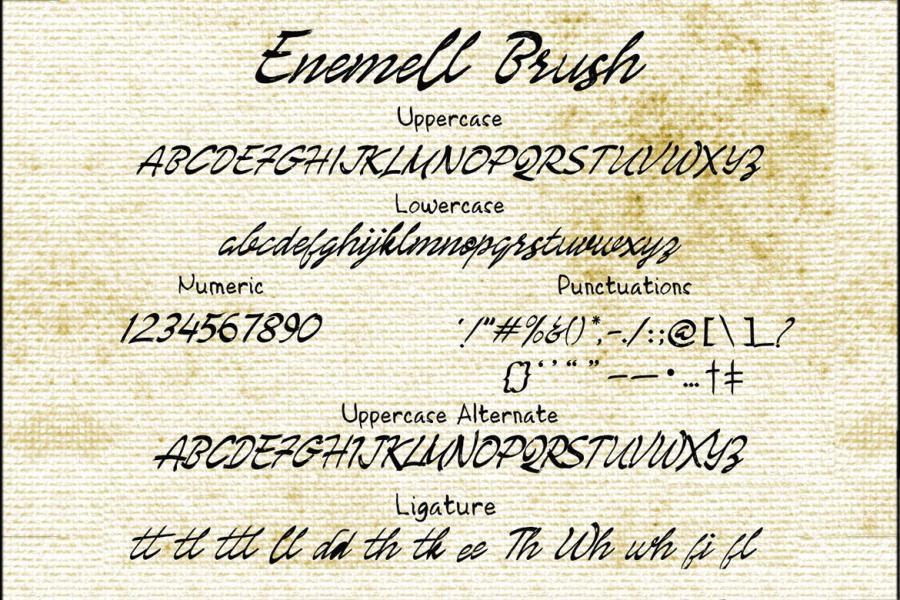 Enemell Brush
Uppercase
ABCDEFGHIJKLMNOPQRSTUVWXYZ
Lowercase
abcdefghijklmnopqrstuvwxyz
Numeric
1234567890
Punctuations
'!"#%&()*,-./:;@[\]_?
{}‘’“”–—•…†‡
Uppercase Alternate
ABCDEFGHIJKLMNOPQRSTUVWXYZ
Ligature
tt tl ttl ll dd th tk ee Th Wh wh fi fl